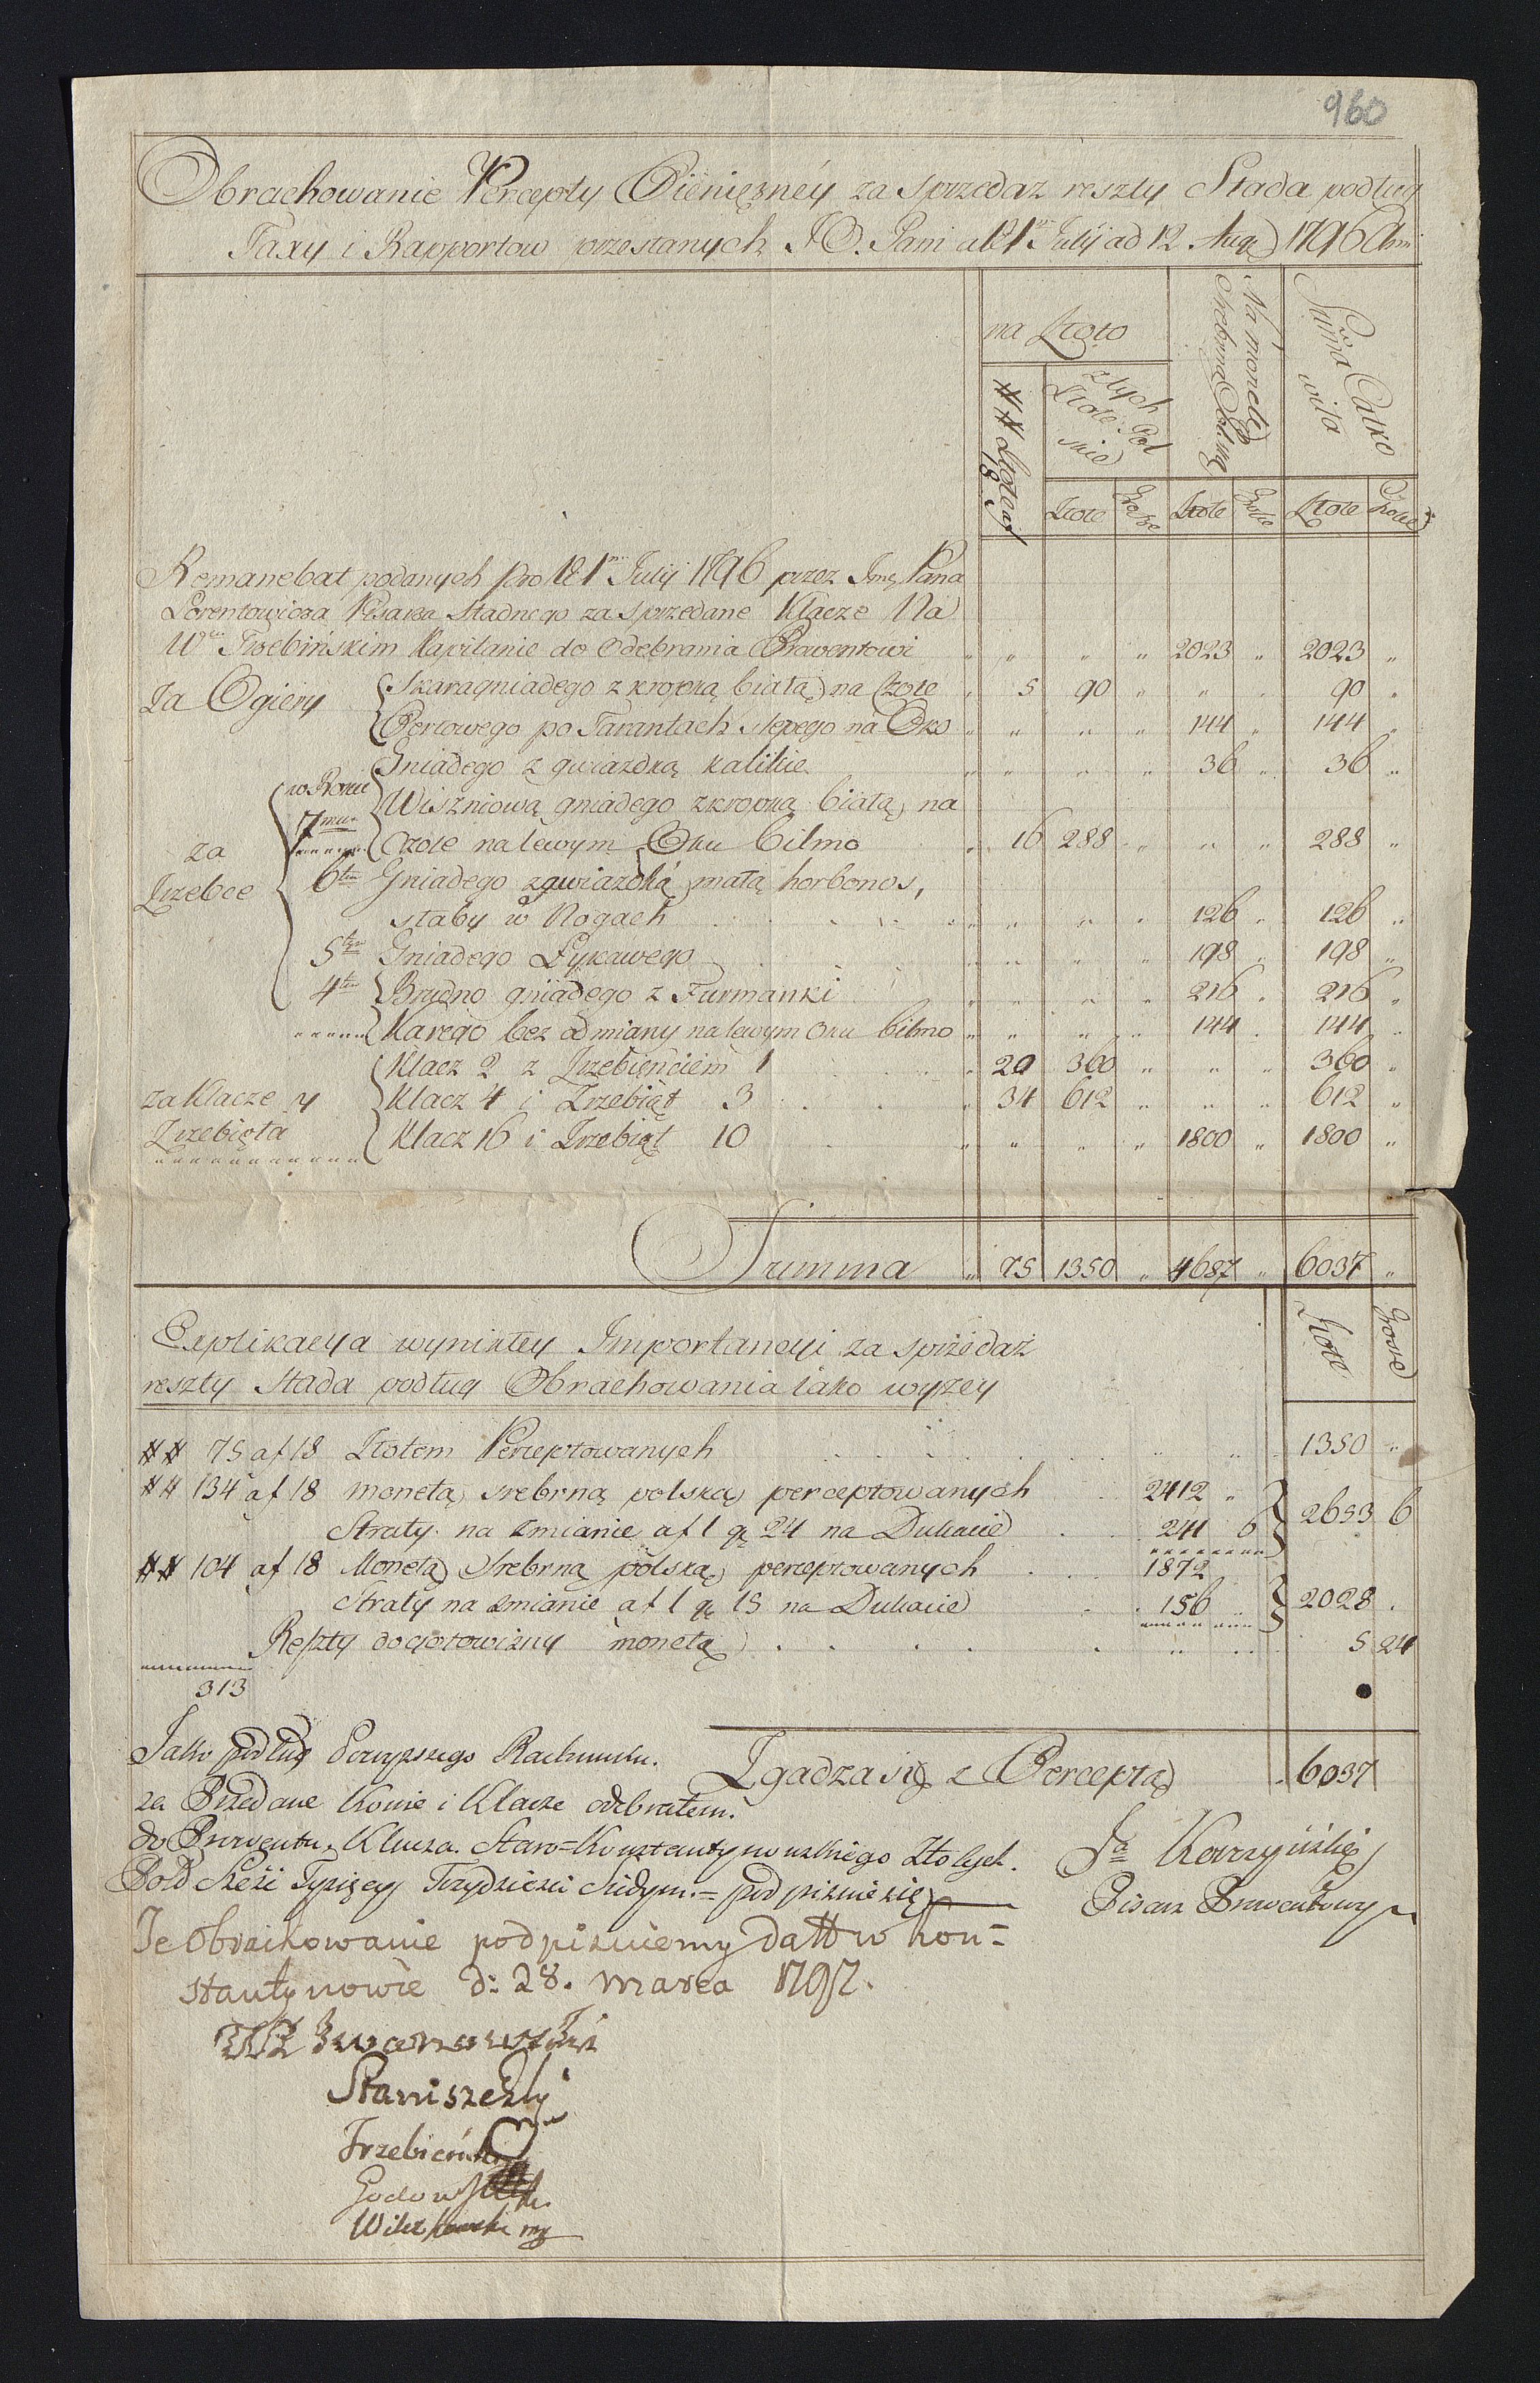 960
Obrachowanie Percepty Pieniężnéy za sprzedaz reszty Stada podług
Taxy i Rapportow przesłanych J.O. Pani a 1ma July ad 12 Augę 1796 Ani
na Złoto
Na monetę Srebrną Polską
Suma Całko wita
## Złote af 18
złtych Złote Pol skie
Złote Grosze Złote Grosze Złote Grosze
Remanebat podanych pro 1ma July 1796 przez Jmę Pana
Lorentowicza Pisarza Stadnego za sprzedane Klacze Na
Wm Trzebińskim Kapitanie do Odebrania Prowentowi " " " " 2023 " 2023 "
Za Ogiery Skarogniadego z kropką białą na Czole " 5 90 " " " 90 "
Perłowego po Tarantach slepego na Oko " " " " 144 " 144 "
Gniadego z gwiazdką kalikie " " " " 36 " 36 "
w Roku 7mu Wiszniowo gniadego z kropką białą na
za Czole na lewym Oku bilmo " 16 288 " " " 288 "
Zrzebce 6tm Gniadego z gwiazdką małą horbonos,
słaby w Nogach " " " " 126 " 126 "
5tm Gniadego Łykawego " " " " 198 " 198 "
4tm Brudno gniadego z Furmanki " " " " 216 " 216 "
Karego bez odmiany na lewym oku bilmo " " " " 144 " 144 "
Klacz 2 z Zrzebięciem 1 " 20 360 " " " 360 "
za Klacze y Klacz 4 i Zrzebiąt 3 " 34 612 " " " 612 "
Zrzebięta Klacz 16 i Zrzebiąt 10 " " " " 1800 " 1800 "
Summa " 75 1350 " 4687 " 6037 "
Złote Grosze
Explikacya wynikłey Importancyi za sprzedaż
reszty Stada podług Obrachowania iako wyzey
## 75 af 18 Złotem Perceptowanych " " 1350 "
## 134 af 18 monetą srebrną polską perceptowanych 2412 "
2653 6
Straty na zmianie af 1 gę 24 na Dukacie 241 6
## 104 af 18 Monetą Srebrną polską perceptowanych 1872
Straty na zmianie af 1 gę 15 na Dukacie 156 " 2028 .
Reszty do gotowizny monetą " " 5 24
313
Jako podług Powyższego Rachunku.
Zgadza się z Perceptą 6037
za Przedane Konie i Klacze odebrałem.
do Prowentu Klucza. Staro=Konstantynowskiego Złotych.
Pols Sześć Tysięcy Trzydzieści Siedym.= podpisuie się
Ja Korzyński
Pisarz Prowentowy
Te Obrachowanie podpisuiemy Datt w Kon=
stantynowie d: 28. marca 1797.
Iwanowski
Staniszewsky
Trzebieński
Godowski